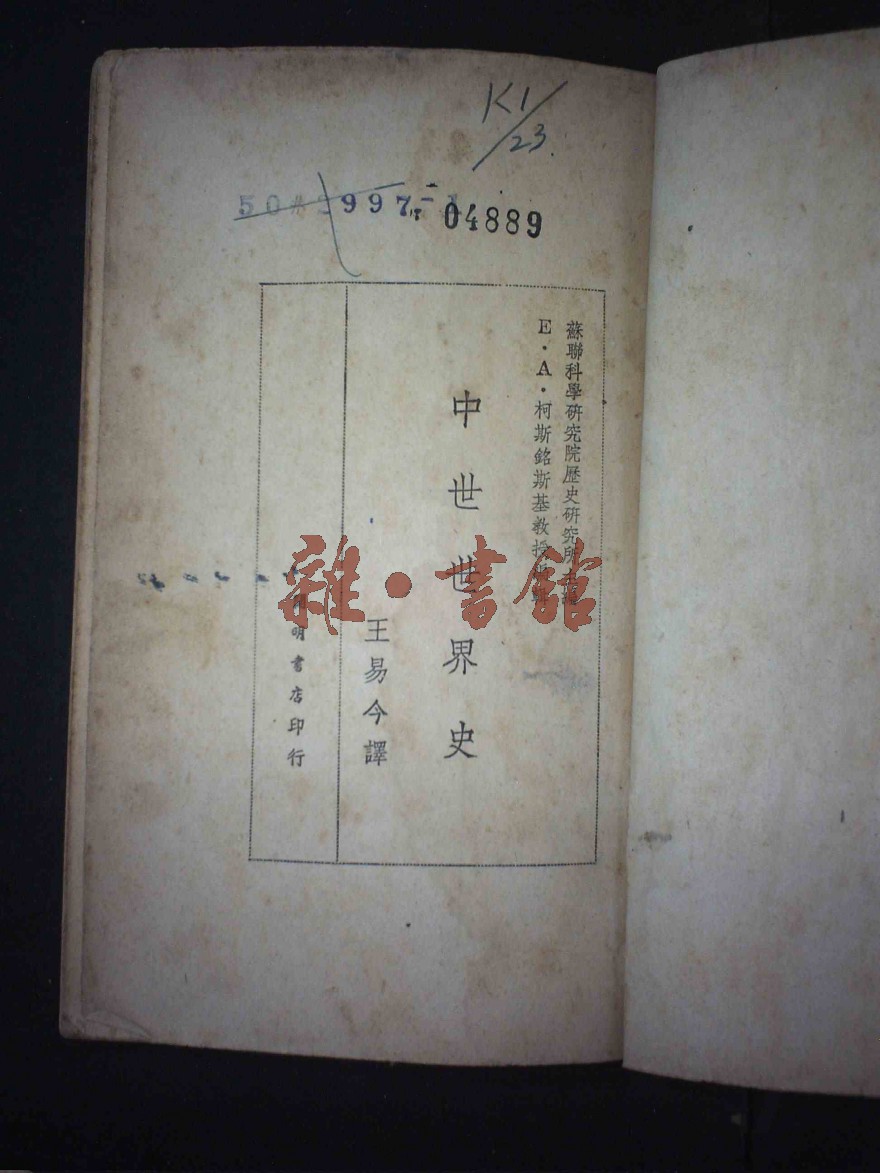 K1/23
997
04889
蘇聯科學研究院歷史研究所
E·A·柯斯銘斯基教授
中世世界史
王易今譯
明書店印行
雜·書館